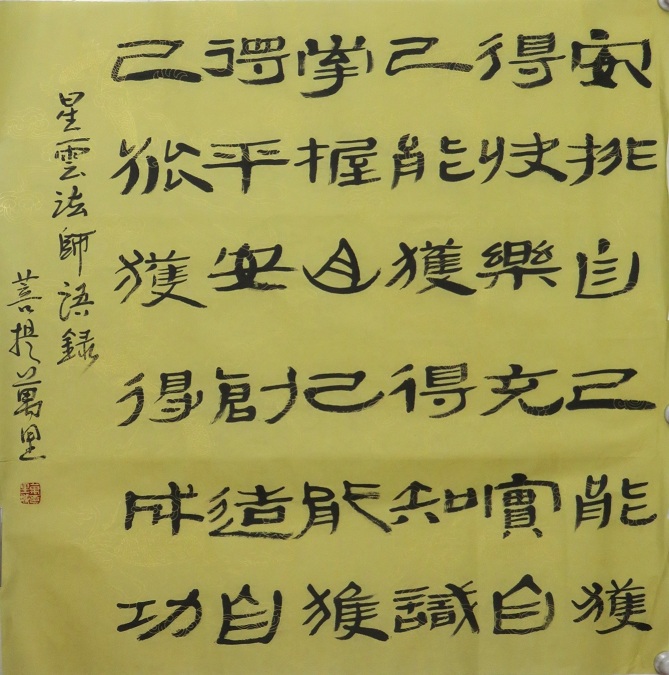 安排自己能獲
得快樂充實自
己能獲得知識
掌握自己能獲
得平安創造自
己能獲得成功
星雲法師語録
菩提萬里